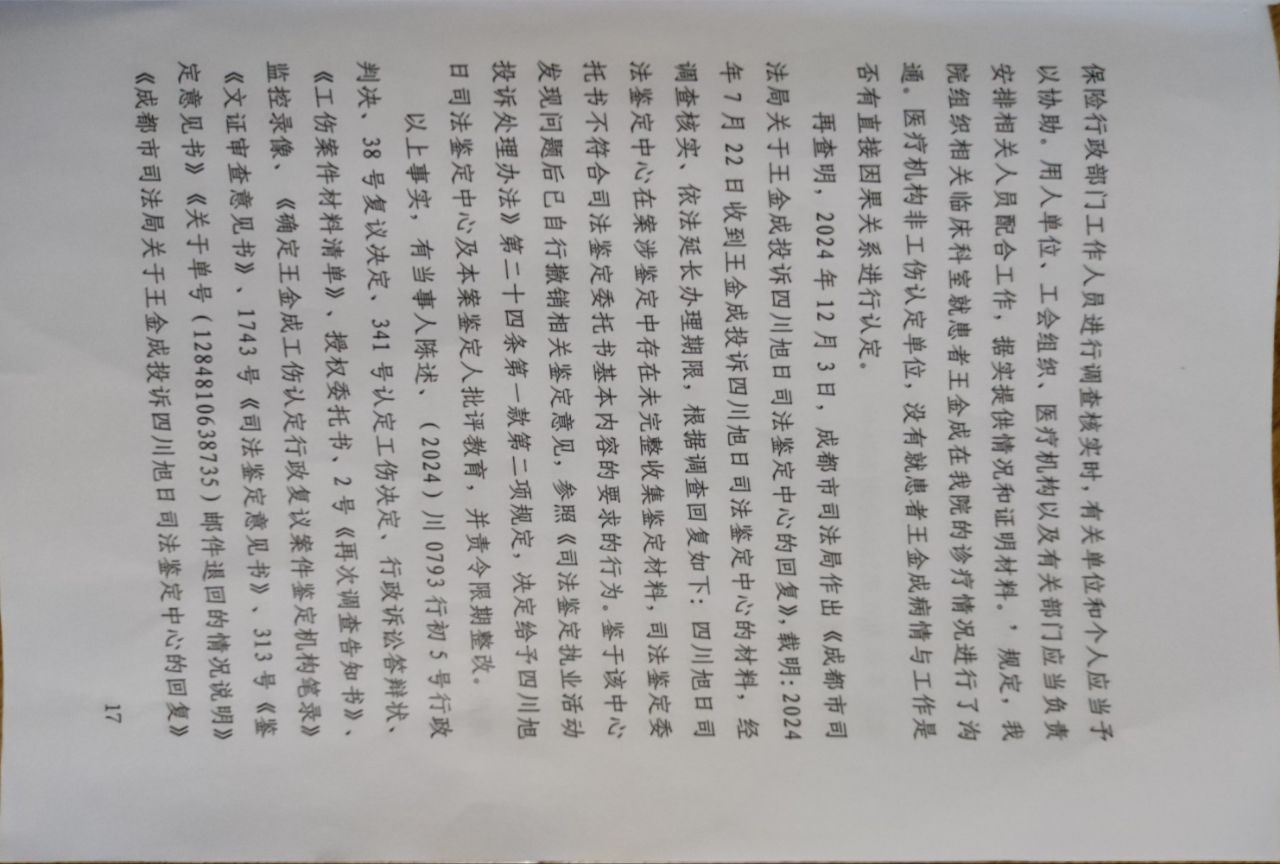 保险行政部门工作人员进行调查核实时,有关单位和个人应当予
以协助。用人单位、工会组织、医疗机构以及有关部门应当负责
安排相关人员配合工作,据实提供情况和证明材料。’规定,我
院组织相关临床科室就患者王金成在我院的诊疗情况进行了沟
通。医疗机构非工伤认定单位,没有就患者王金成病情与工作是
否有直接因果关系进行认定。
再查明,2024年12月3日,成都市司法局作出《成都市司
法局关于王金成投诉四川旭日司法鉴定中心的回复》,载明:2024
年7月22日收到王金成投诉四川旭日司法鉴定中心的材料,经
调查核实、依法延长办理期限,根据调查回复如下:四川旭日司
法鉴定中心在案涉鉴定中存在未完整收集鉴定材料,司法鉴定委
托书不符合司法鉴定委托书基本内容的要求的行为。鉴于该中心
发现问题后已自行撤销相关鉴定意见,参照《司法鉴定执业活动
投诉处理办法》第二十四条第一款第二项规定,决定给予四川旭
日司法鉴定中心及本案鉴定人批评教育,并责令限期整改。
以上事实,有当事人陈述、(2024)川0793行初5号行政
判决、38号复议决定、341号认定工伤决定、行政诉讼答辩状、
《工伤案件材料清单》、授权委托书、2号《再次调查告知书》、
监控录像、《确定王金成工伤认定行政复议案件鉴定机构笔录》
《文证审查意见书》、1743号《司法鉴定意见书》、313号《鉴
定意见书》《关于单号(1284810638735)邮件退回的情况说明》
《成都市司法局关于王金成投诉四川旭日司法鉴定中心的回复》
17